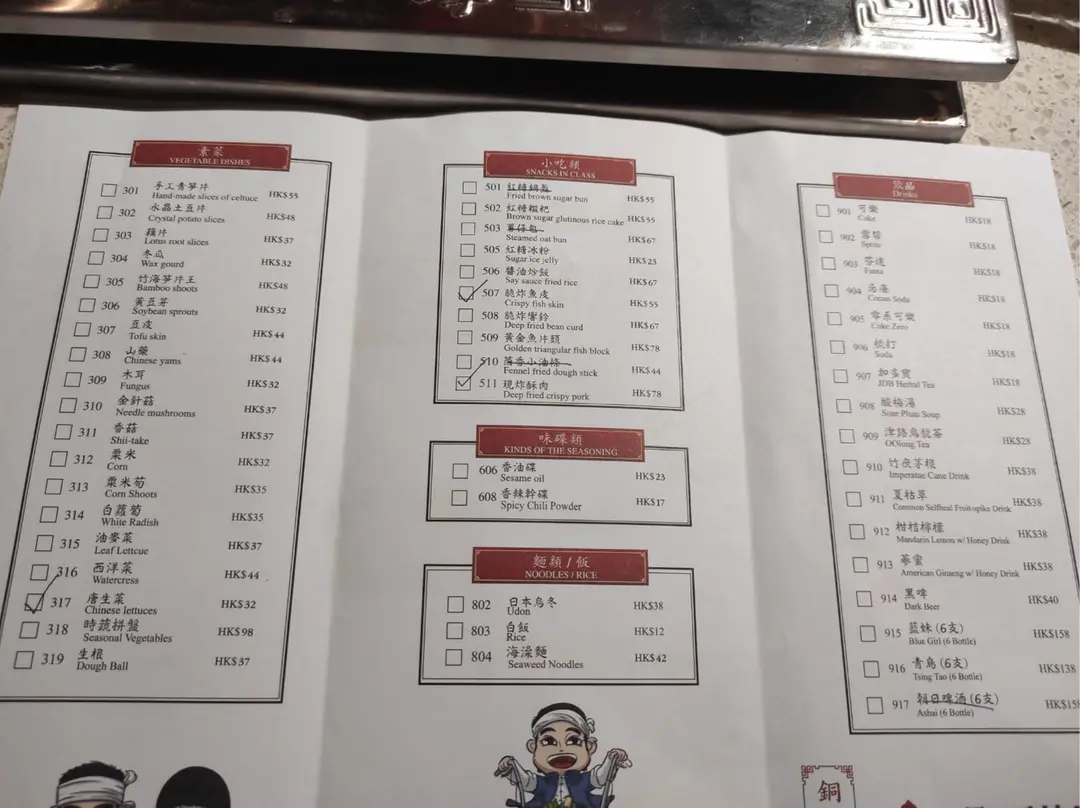 素菜
VEGETABLE DISHES
301 手工青笋片 HK$55
Hand-made slices of celtuce
302 水晶土豆片 HK$48
Crystal potato slices
303 藕片 HK$37
Lotus root slices
304 冬瓜 HK$32
Wax gourd
305 竹海笋片王 HK$48
Bamboo shoots
306 黃豆芽 HK$32
Soybean sprouts
307 豆皮 HK$44
Tofu skin
308 山藥 HK$44
Chinese yams
309 木耳 HK$32
Fungus
310 金針菇 HK$37
Needle mushrooms
311 香菇 HK$37
Shii-take
312 粟米 HK$32
Corn
313 粟米荀 HK$35
Corn Shoots
314 白蘿蔔 HK$35
White Radish
315 油麥菜 HK$37
Leaf Lettcue
316 西洋菜 HK$44
Watercress
317 唐生菜 HK$32
Chinese lettuces
318 時蔬拼盤 HK$98
Seasonal Vegetables
319 生根 HK$37
Dough Ball
小吃類
SNACKS IN CLASS
501 紅糖鍋盔 HK$55
Fried brown sugar bun
502 紅糖糍粑 HK$55
Brown sugar glutinous rice cake
503 薯仔包 HK$67
Steamed oat bun
505 紅糖冰粉 HK$23
Sugar ice jelly
506 醬油炒飯 HK$67
Say sauce fried rice
507 脆炸魚皮 HK$55
Crispy fish skin
508 脆炸響鈴 HK$67
Deep fried bean curd
509 黃金魚片頭 HK$78
Golden triangular fish block
510 茴香小油條 HK$44
Fennel fried dough stick
511 現炸酥肉 HK$78
Deep fried crispy pork
味碟類
KINDS OF THE SEASONING
606 香油碟 HK$23
Sesame oil
608 香辣幹碟 HK$17
Spicy Chili Powder
麵類/飯
NOODLES / RICE
802 日本烏冬 HK$38
Udon
803 白飯 HK$12
Rice
804 海澡麵 HK$42
Seaweed Noodles
飲品
Drinks
901 可樂 HK$18
Cake
902 雪碧 HK$18
Sprite
903 芬達 HK$18
Fanta
904 忌廉 HK$18
Cream Soda
905 零系可樂 HK$18
Coke Zero
906 梳打 HK$18
Soda
907 加多寶 HK$18
JDB Herbal Tea
908 酸梅湯 HK$28
Sour Plum Soup
909 津路烏龍茶 HK$28
OOlong Tea
910 竹蔗茅根 HK$38
Imperatae Cane Drink
911 夏枯草 HK$38
Common Selfheal Fruit-spike Drink
912 柑桔檸檬 HK$38
Mandarin Lemon w/ Honey Drink
913 蔘蜜 HK$38
American Ginseng w/ Honey Drink
914 黑啤 HK$40
Dark Beer
915 藍妹(6支) HK$158
Blue Girl (6 Bottle)
916 青島(6支) HK$138
Tsing Tao (6 Bottle)
917 朝日啤酒(6支)
Ashai (6 Bottle)
銅